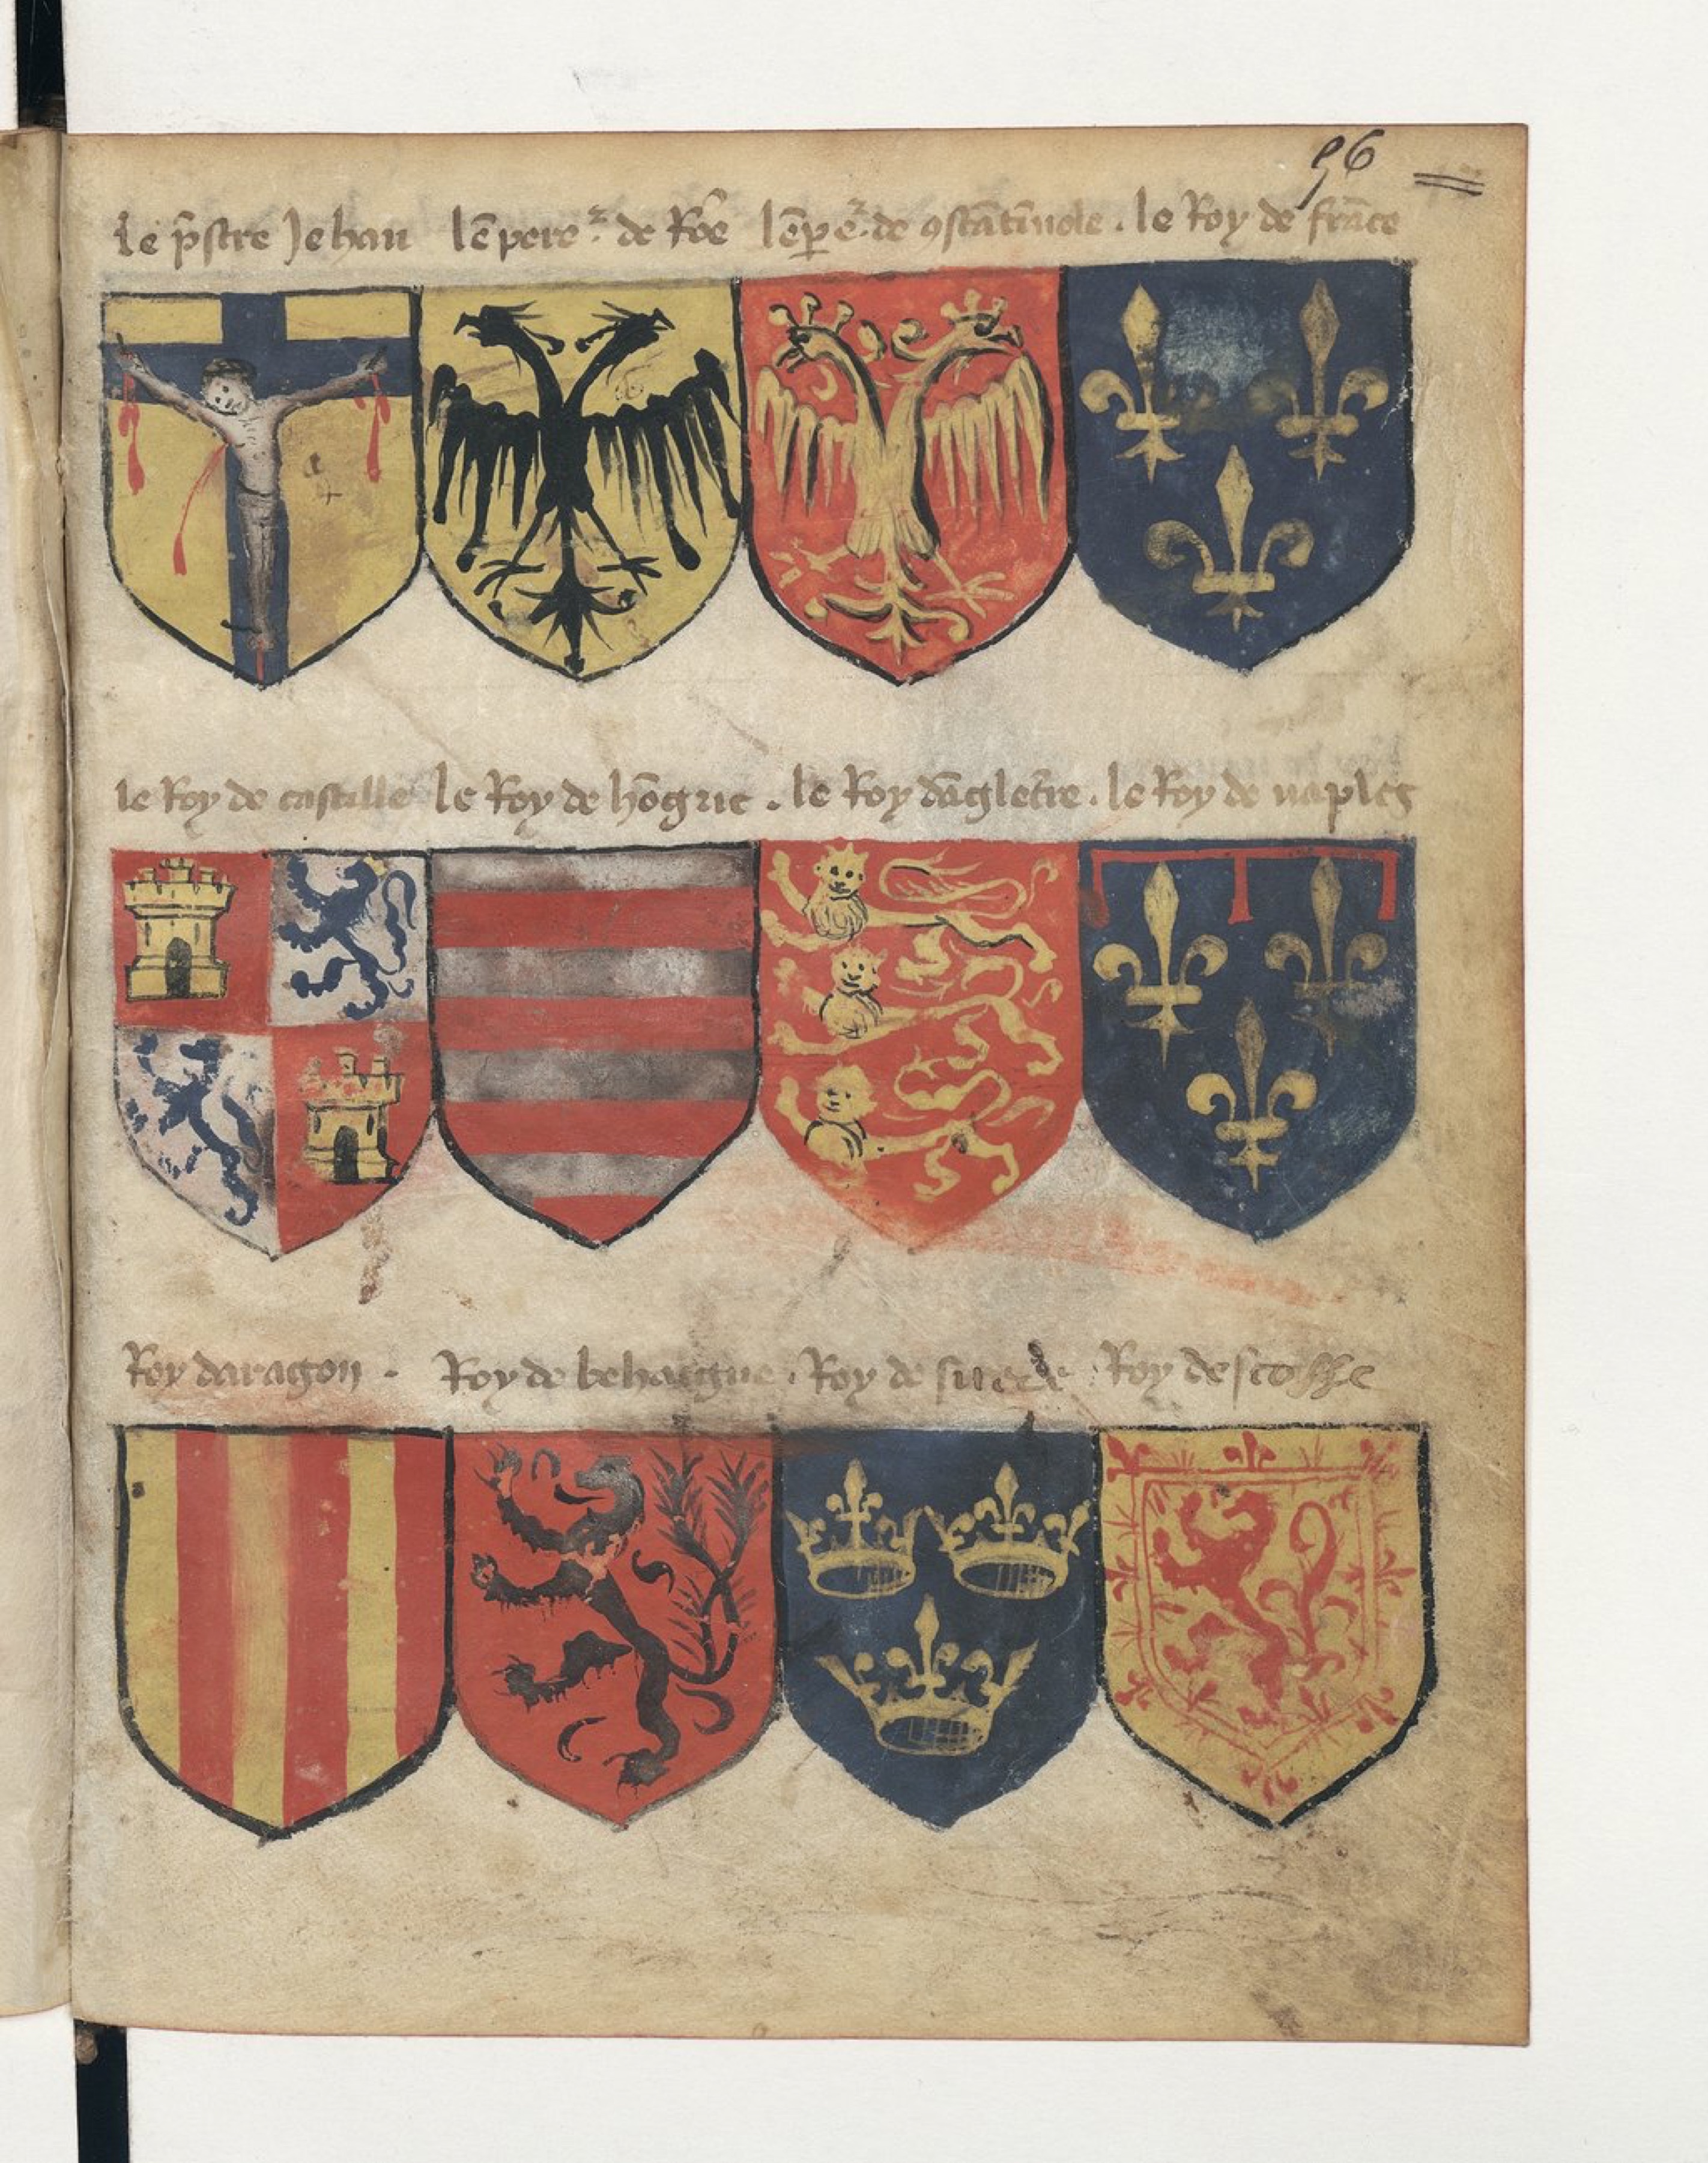 96
le p̄stre Jehan lēpereᷣ de Rōe lēpe᷑ de ꝯstātīnole . le Roy de frāce
le Roy de castille le Roy de hōgrie . le Roy dāgletr̄e . le Roy de naples
Roy daragon . Roy de behaigne . Roy de suede . Roy descosse